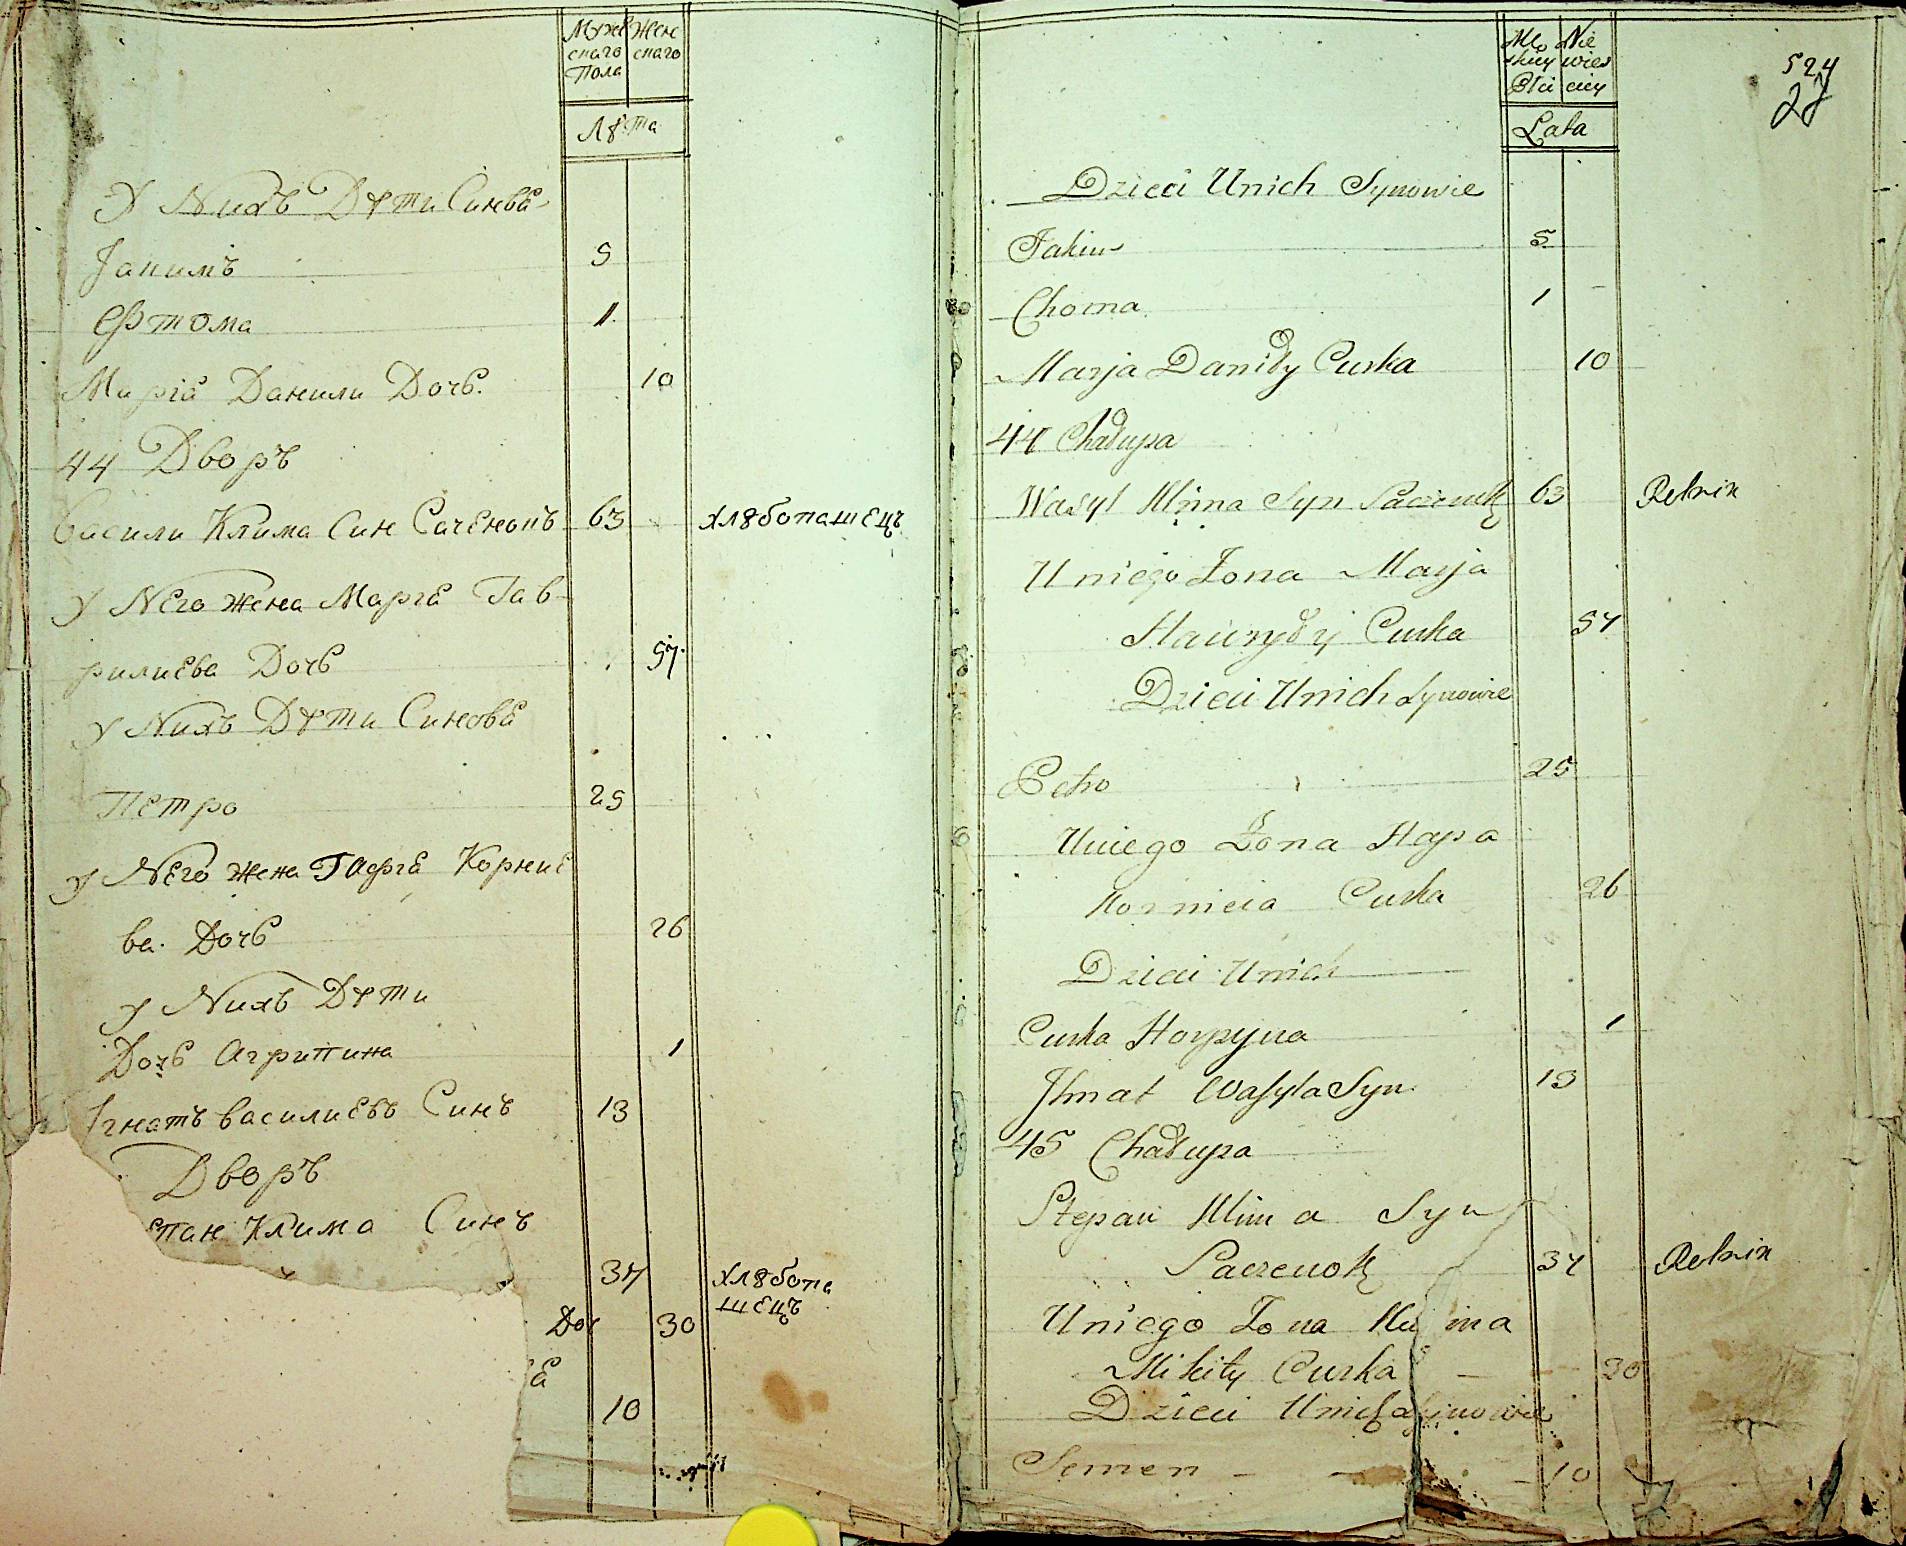 Муже Жен
скаго скаго
Пола
Лѣта
У Нихъ Дѣти Синвѣ
Јакимъ 5
Фтома 1
Марія Данили Дочь. 10
44 Дворъ
Васили Клима Син Саченокъ 63 хлѣбопашецъ
У Него жена Марія Гав-
рилиева Дочь 57.
у Нихъ Дѣти Синовѣ
Петро 25
у Него жена Гапа Корние
ва. Дочь 26
у Нихъ Дѣти
Дочь Агрипина 1
Ігнатъ василиевъ Синъ 13
Дворъ
епан Клима Синъ
37 хлѣбопа
шецъ
Доч 30
10
524
27
Mę Nie
skiey wies
Płci ciey
Lata
Dzieci Unich Synowie
Jakim 5
Choma 1
Marja Daniły Curka 10
44 Chałupa
Wasyl Klima Syn Saczenok 63 Rolnik
Uniego Żona Marja
Hawryły Curka 57
Dzieci Unich Synowie
Petro 25
Uniego Żona Hapa
Kornieia Curka 26
Dzieci Unich
Curka Horpyna 1
Ihnat Wasyla Syn 13
45 Chałupa
Stepan Klima Syn
Saczenok 37 Rolnik
Uniego Żona
Mikity Curka 30
Dzieci Unich Synowie
Semen 10